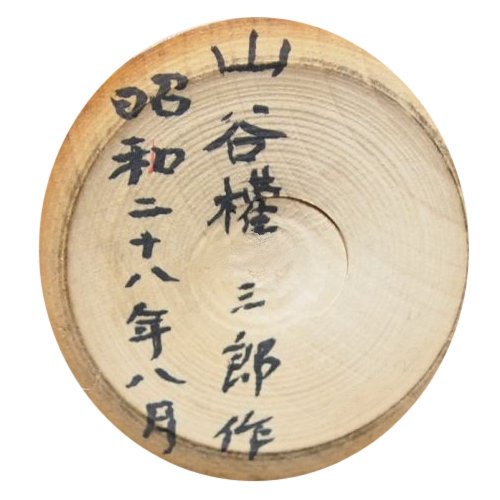 山谷権三郎作
昭和二十八年八月